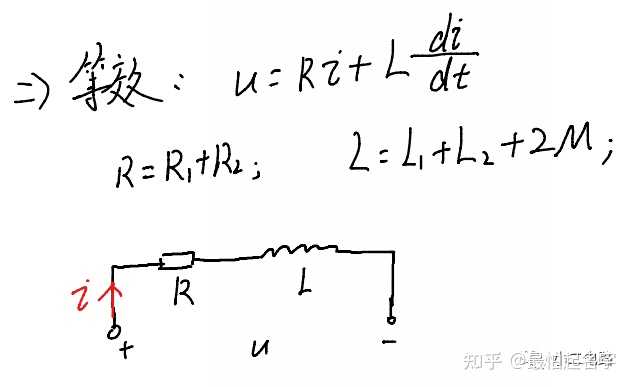 ⇒ 等效: u = Ri + L di/dt
R = R₁ + R₂; L = L₁ + L₂ + 2M;
i R L
+ u -
知乎